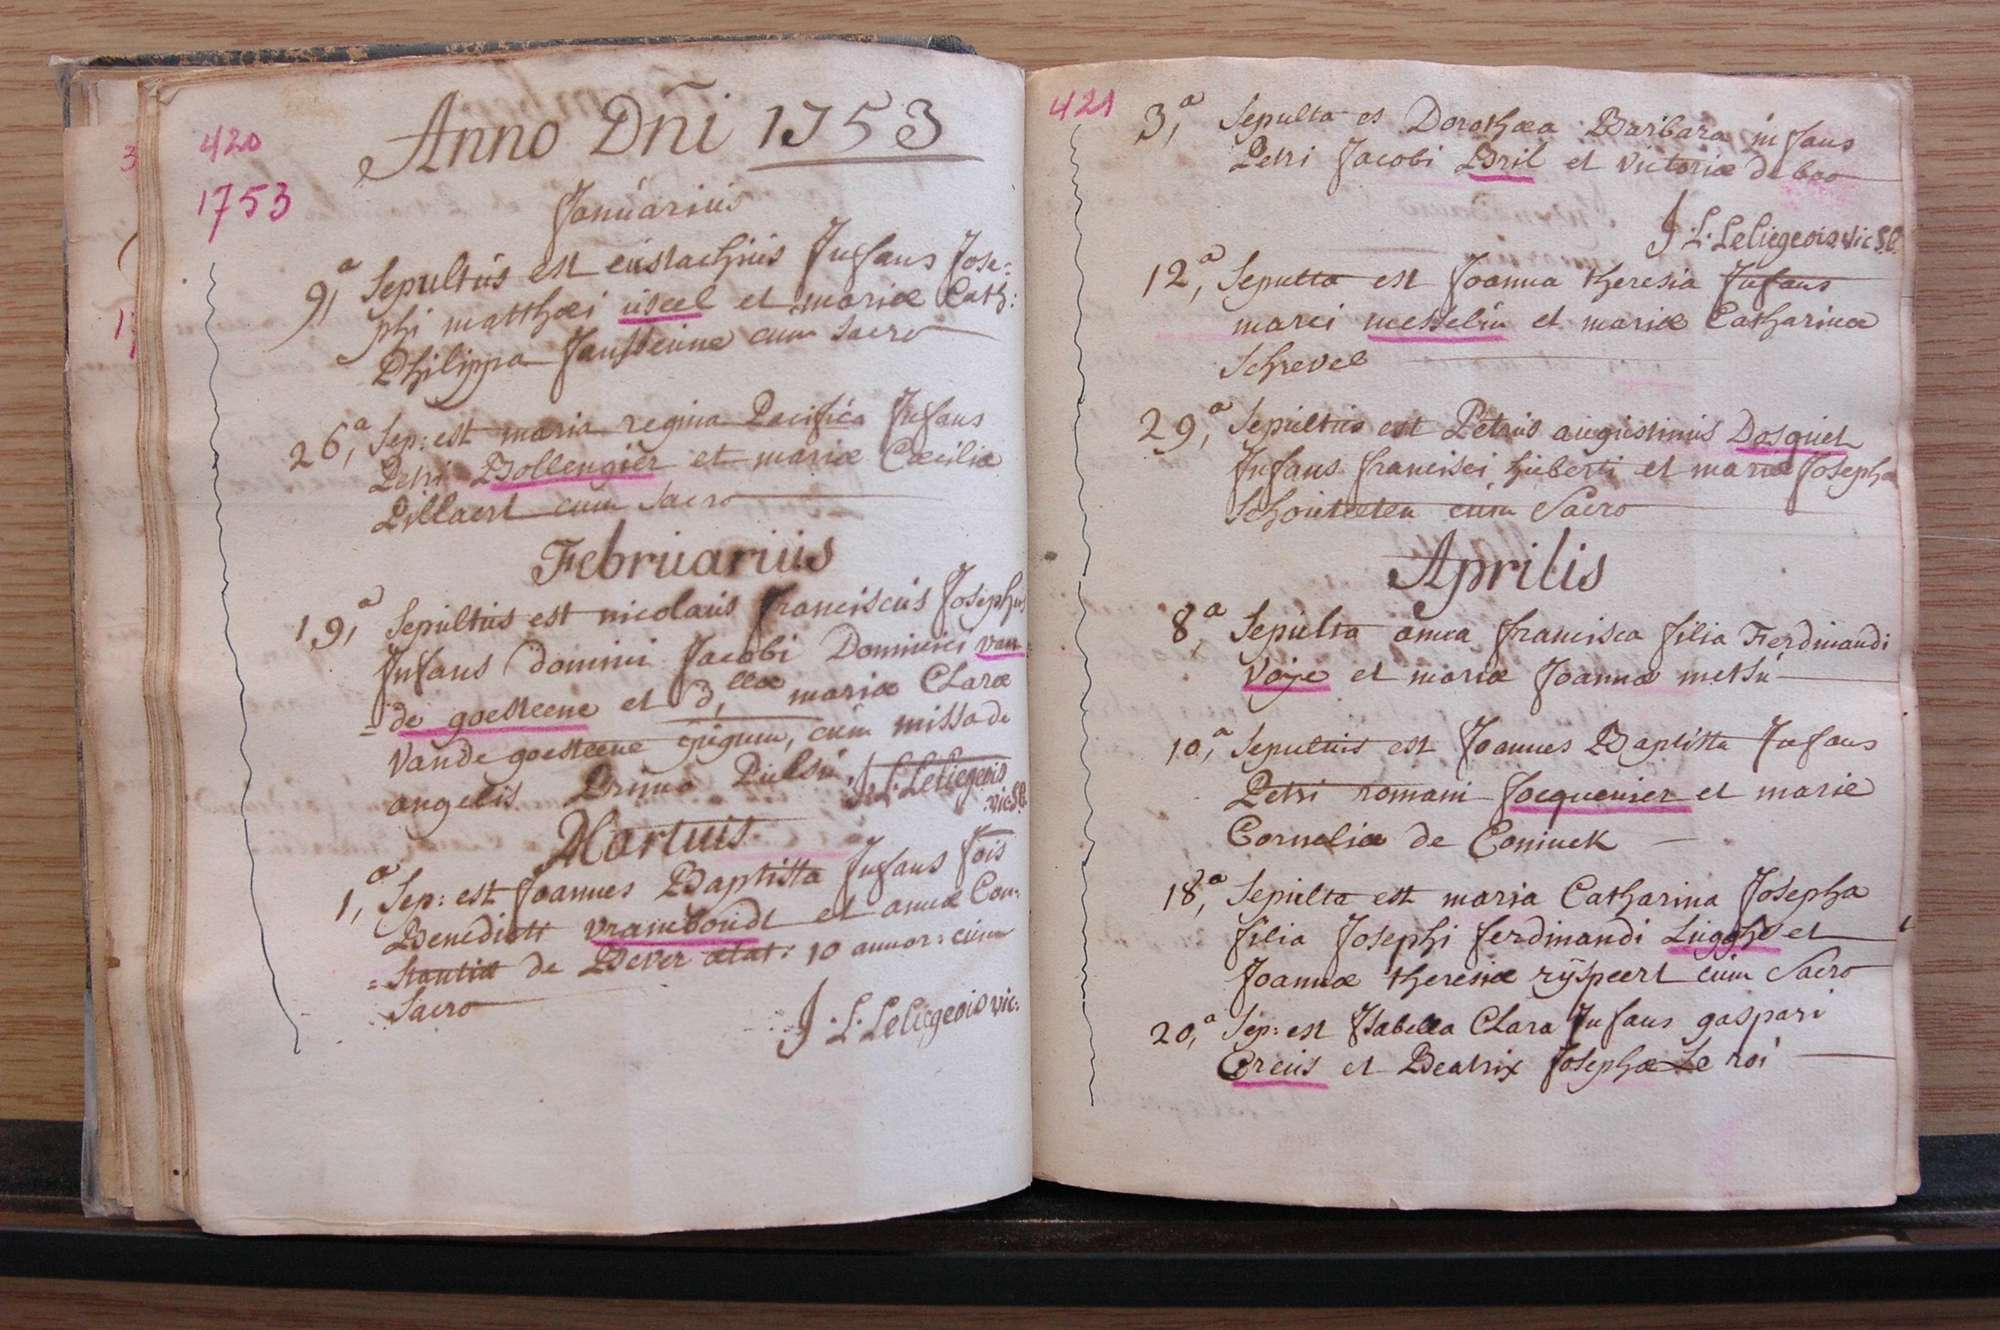 420
1753
Anno Dñi 1753
Januarius
9,a Sepultus est eustachius Infans Jose=
phi matthæi uscel et mariæ Cath:
Philippa Jansseune cum sacro
26,a Sep: est maria regina Pacifica Infans
Petri Bollengier et mariæ Cæcilia
Pillaert cum sacro
Februarius
19,a Sepultus est nicolaus franciscus Josephus
Infans domini Jacobi Dominici van=
=de goesteene et d,llæ mariæ Claræ
vande goesteene cum missa de
angelis Primo J: L: Leliegeois
vic: S.
Martius
1,a Sep: est Joannes Baptista Infans fois
Benedicti vramboudt et annæ Con=
=stantiæ de Bever ætat: 10 annor: cum
Sacro
J. L. Leliegeois vic:
421
3,a Sepulta es Dorothæa Barbara infans
Petri Jacobi Bril et victoriæ de boo
J. L. Leliegeois vic
12,a Sepulta est Joanna theresia Infans
marci messelin et mariæ Catharinæ
Schrevel
29,a Sepultus est Petrus augustinus Dosquet
Infans francisci huberti et mariæ Josepha
Schouteeten cum Sacro
Aprilis
8,a Sepulta anna francisca filia Ferdinandi
voije et mariæ Joannæ metsu
10,a Sepultus est Joannes Baptista Infans
Petri romani focquenier et marie
Corneliæ de Coninck
18,a Sepulta est maria Catharina Josepha
filia Josephi ferdinandi Lugghe et
Joannæ theresiæ rijspeert cum Sacro
20,a Sep: est Isabella Clara Infans gaspari
Creus et Beatrix Josephæ Le roi